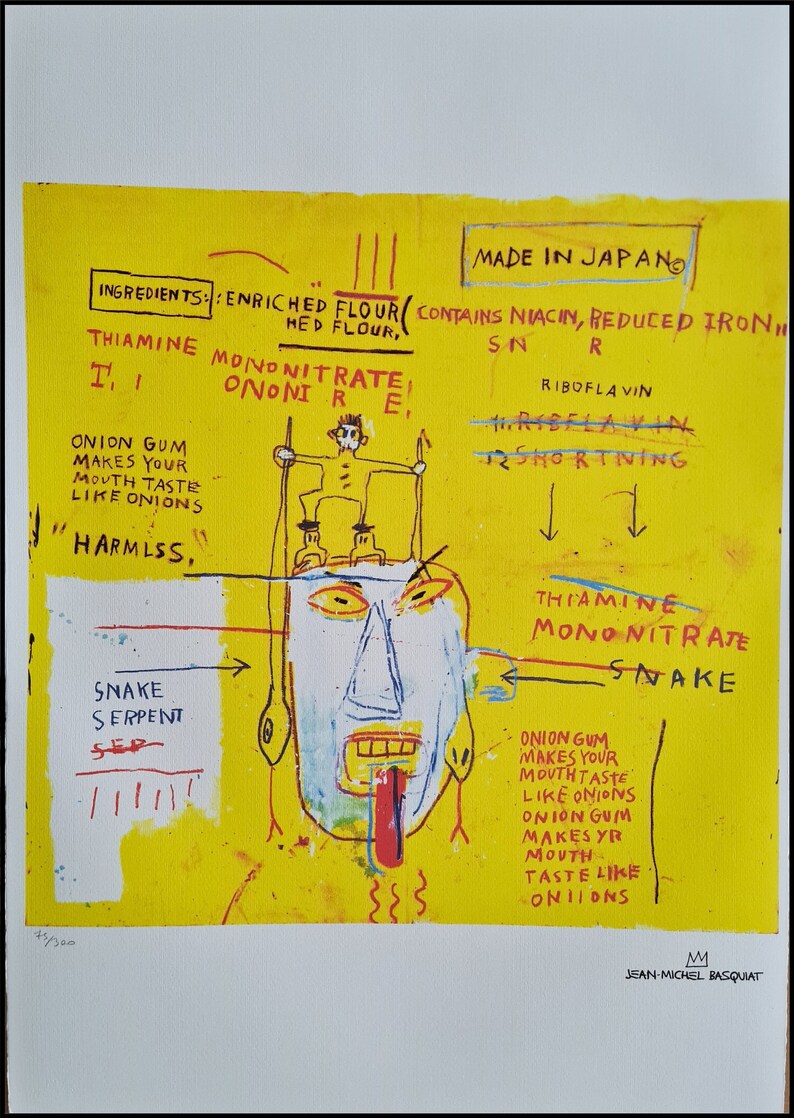 MADE IN JAPAN©
INGREDIENTS: : ENRICHED FLOUR (CONTAINS NIACIN, REDUCED IRON,,
HED FLOUR,
S N R
THIAMINE MONONITRATE,
T, I ONONI R E,
RIBOFLAVIN
11. RIBFLAVIN
12 SHORTNING
ONION GUM
MAKES YOUR
MOUTH TASTE
LIKE ONIONS
"HARMLSS,
THIAMINE
MONONITRATE
SNAKE
SNAKE
SERPENT
SEP
ONION GUM
MAKES YOUR
MOUTH TASTE
LIKE ONIONS
ONION GUM
MAKES YR
MOUTH
TASTE LIKE
ONIIONS
75/300
JEAN-MICHEL BASQUIAT